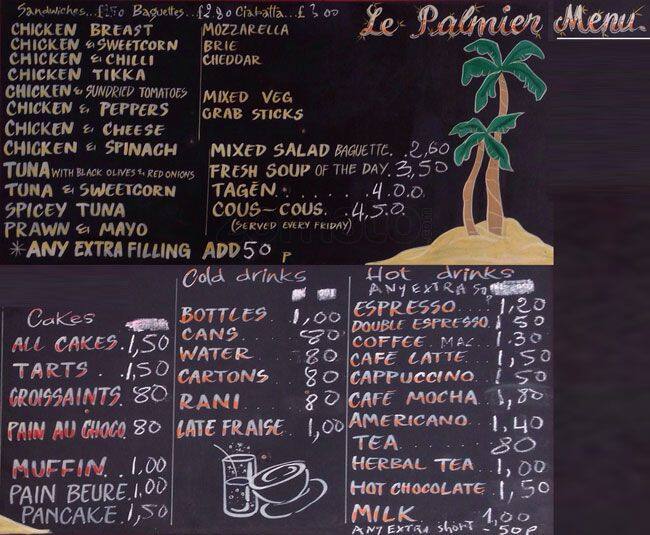 Sandwiches...£1.50 Baguettes...£2.80 Ciabatta...£3.00
Le Palmier Menu
CHICKEN BREAST
CHICKEN & SWEETCORN
CHICKEN & CHILLI
CHICKEN TIKKA
CHICKEN & SUNDRIED TOMATOES
CHICKEN & PEPPERS
CHICKEN & CHEESE
CHICKEN & SPINACH
TUNA WITH BLACK OLIVES & RED ONIONS
TUNA & SWEETCORN
SPICEY TUNA
PRAWN & MAYO
*ANY EXTRA FILLING ADD 50 P
MOZZARELLA
BRIE
CHEDDAR
MIXED VEG
CRAB STICKS
MIXED SALAD BAGUETTE..2,60
FRESH SOUP OF THE DAY.3,50
TAGEN.......4.00.
COUS-COUS..4,50.
(SERVED EVERY FRIDAY)
Cakes
ALL CAKES.1,50
TARTS..1,50
CROISSAINTS.80
PAIN AU CHOCO 80
MUFFIN..1,00
PAIN BEURE.1,00
PANCAKE.1,50
Cold drinks
BOTTLES..1,00
CANS....80
WATER...80
CARTONS..80
RANI....80
LATE FRAISE..1,00
Hot drinks
ANY EXTRA 50
ESPRESSO...1,20
DOUBLE ESPRESSO.1 50
COFFEE MAC..1.30
CAFE LATTE..1,50
CAPPUCCINO.1 50
CAFE MOCHA..1,80
AMERICANO..1,40
TEA....80
HERBAL TEA..1,00
HOT CHOCOLATE.1,50
MILK 1,00
ANY EXTRA short - 50P